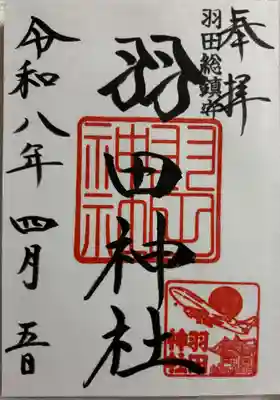 奉拝
羽田総鎮守
羽田神社
令和八年 四月 五日
羽田神社
羽田神社